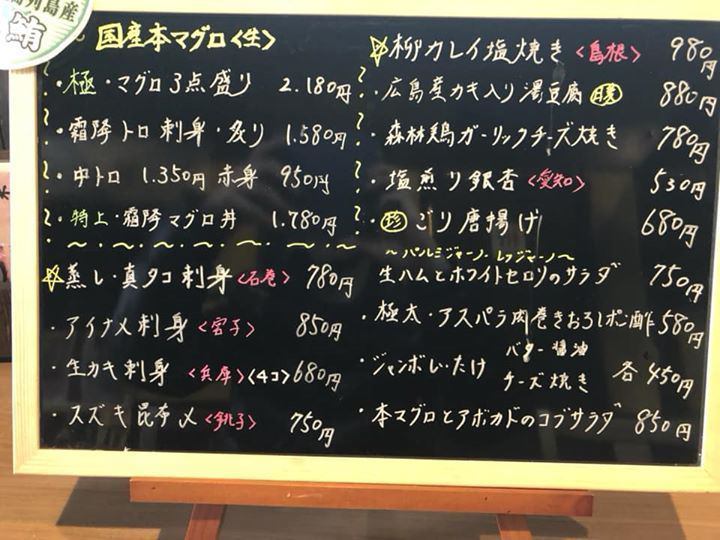 列島産
鮪
国産本マグロ〈生〉
・極・マグロ3点盛り 2.180円
・霜降トロ刺身・炙り 1.580円
・中トロ 1.350円 赤身 950円
・特上・霜降マグロ丼 1.780円
☆蒸し・真タコ刺身〈石巻〉 780円
・アイナメ刺身〈宮子〉 850円
・生カキ刺身〈兵庫〉〈4コ〉 680円
・スズキ昆布〆〈銚子〉 750円
☆柳カレイ塩焼き〈島根〉 980円
・広島産カキ入り湯豆腐 880円
・森林鶏ガーリックチーズ焼き 780円
・塩煎り銀杏〈愛知〉 530円
・珍ごり唐揚げ 680円
～パルミジャーノ・レジャーノ～
生ハムとホワイトセロリのサラダ 750円
・極太・アスパラ肉巻きおろしポン酢 580円
・ジャンボしいたけ バター醤油
チーズ焼き 各450円
・本マグロとアボカドのコブサラダ 850円